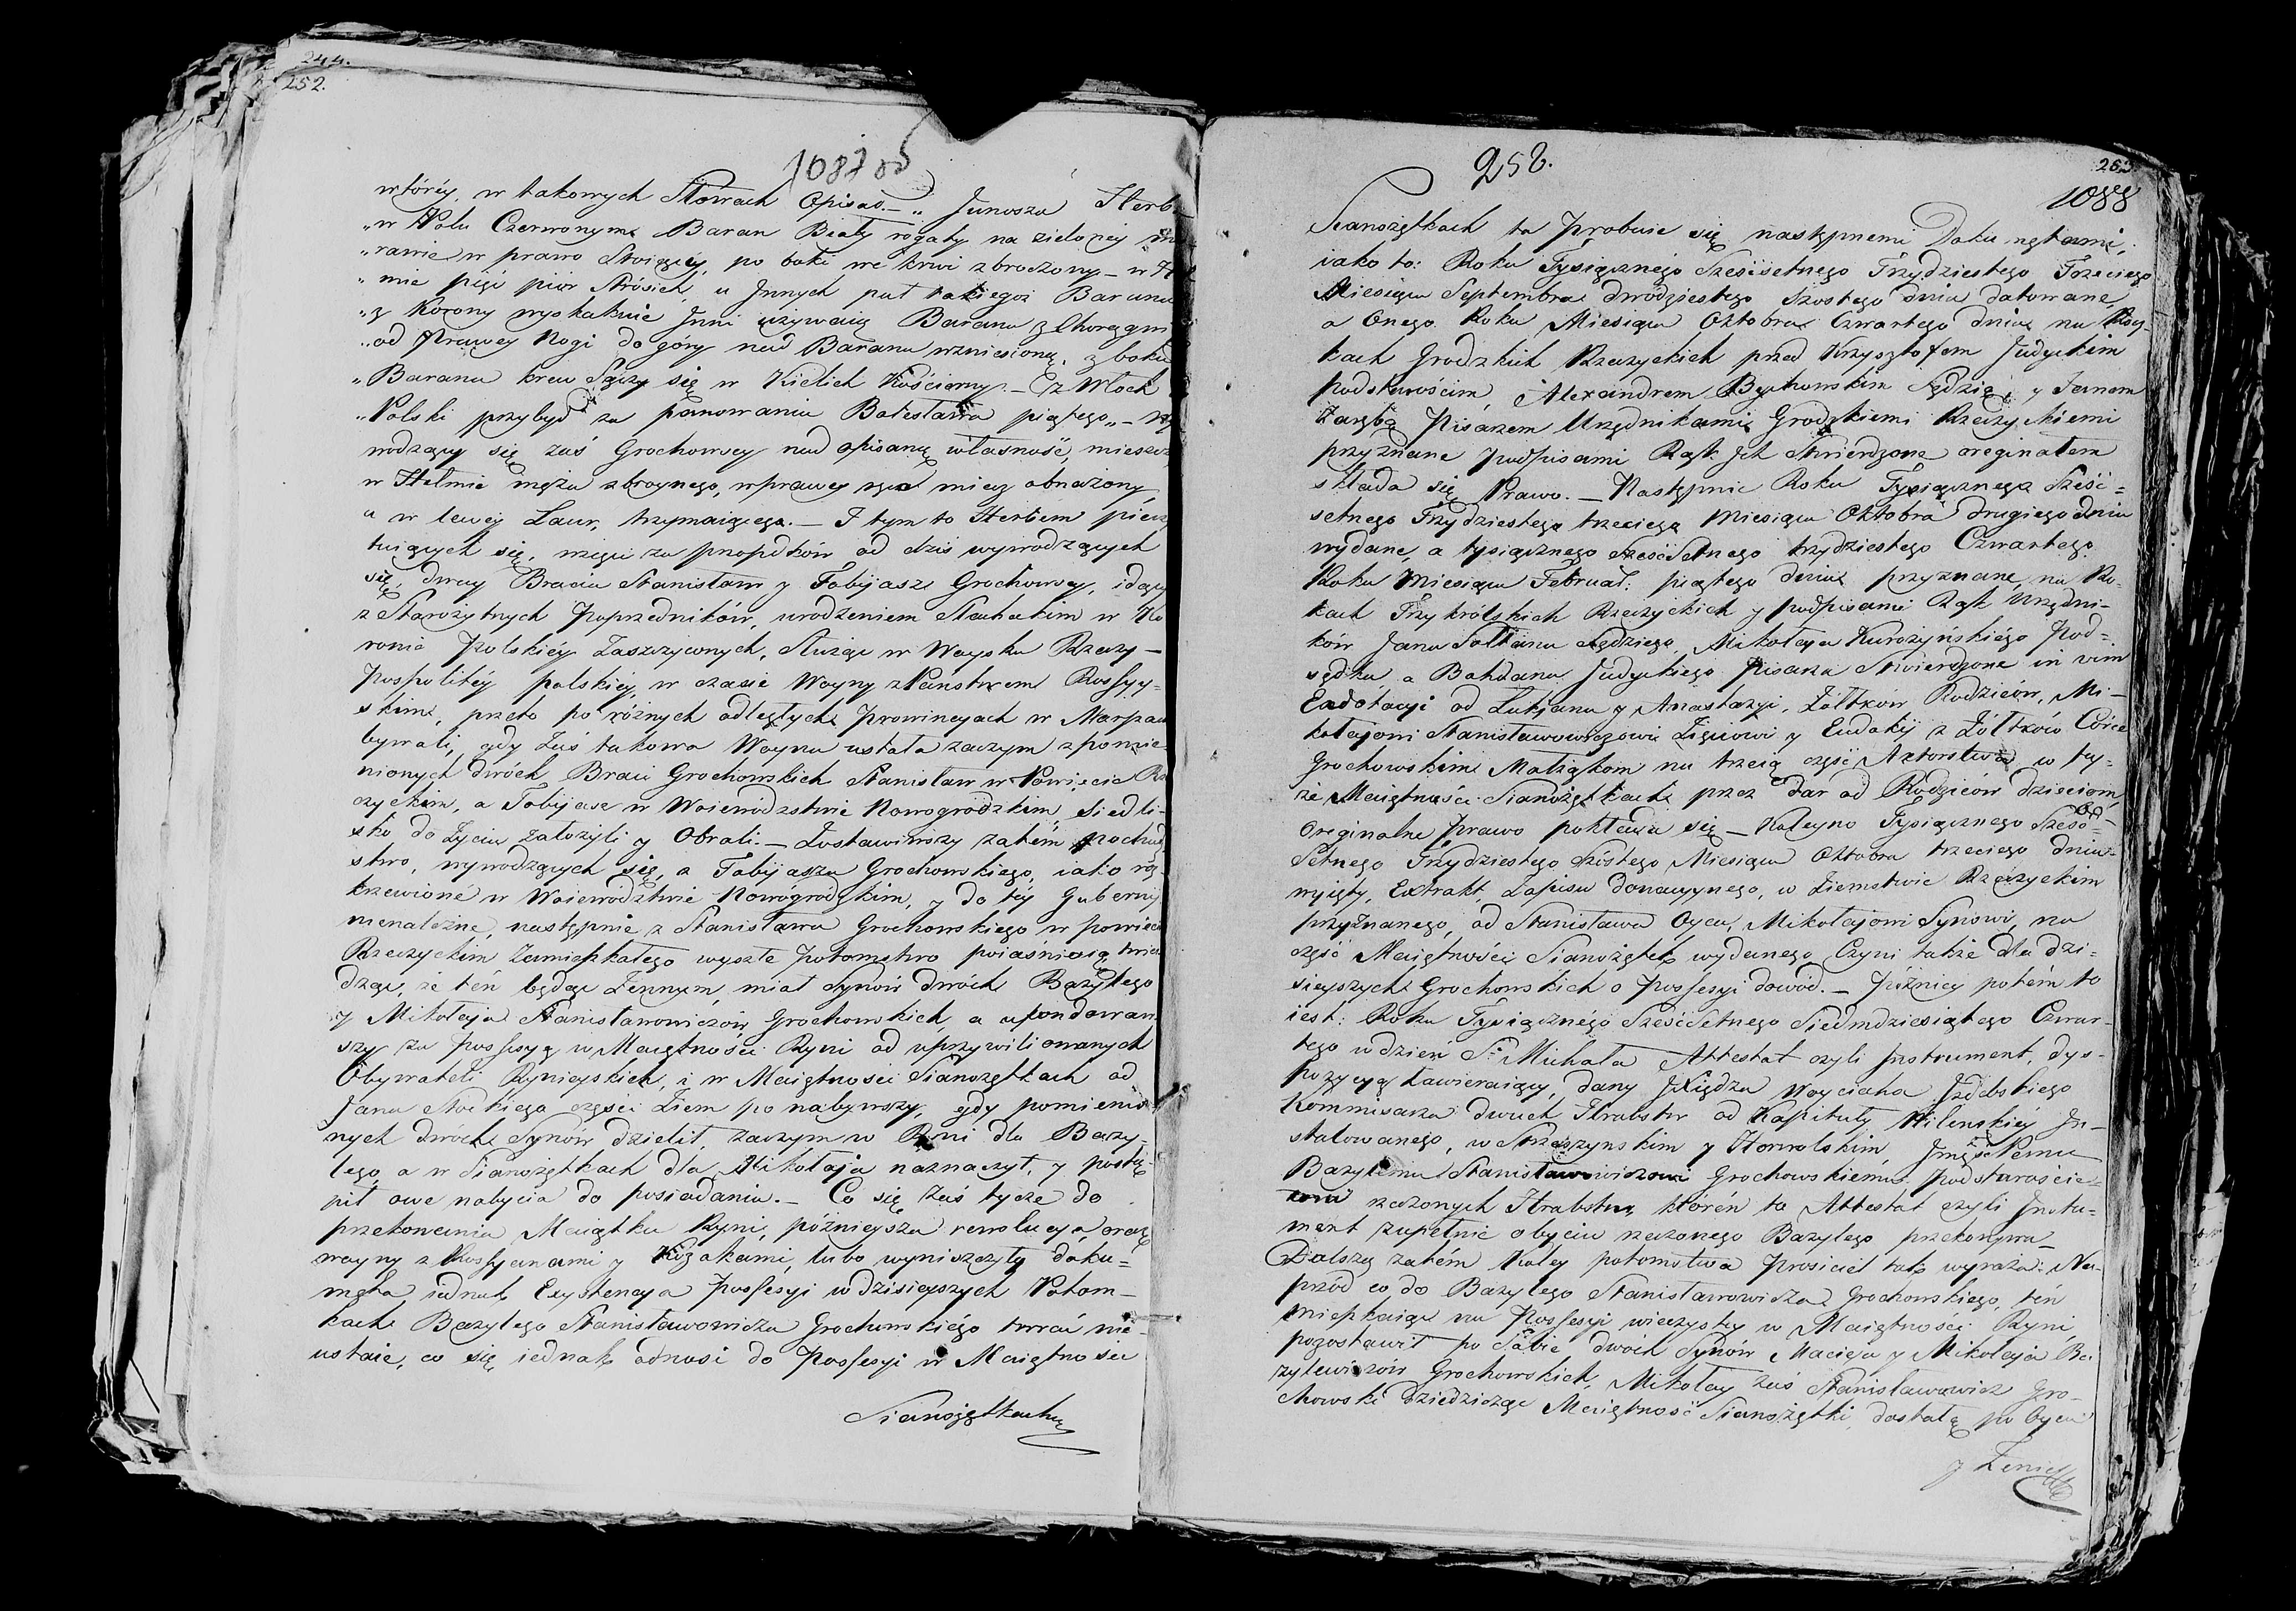 244.
252.
1087 od
wtóréy, w takowych Słowach Opisał. — „ Junosza Herb
„w Polu Czerwonym Baran Biały rogaty na zieloney mu
„rawie w prawo Stoiący, po boku we krwi zbroczony — w H
„mie pięć piór Strósich, u Innych puł takiegoż Barana
„z Korony wyskakuie Inni używaią Barana z Chorągwi
„od Prawey Nogi do góry nad Barana wzniesioną, z boku
„Barana krew Sączy się w Kielich Kościerny. — z Włoch
„Polski przybył za panowania Bolesława piątego„ — wy
wodzący się zaś Grochowscy nad opisaną własność, mieszcz
w Hełmie męża zbroynego, w prawey ręce miecz obnażony,
a w lewéy Laur, trzymaiącego. — I tym to Herbem piecz
tuiących się, więc za propdków od dziś wywodzących
się, dway Bracia Stanisław y Tobijasz Grochowscy, idący
z Starożytnych Poprzedników, urodzeniem Szlachetkim w Ko
ronie Polskiéy Zaszczyconych, Służąc w Woysku Rzeczy —
Pospolitéy polskiéy, w czasie Woyny z Państwem Rossyy-
skim, przeto po różnych odległych Prowincyach w Marszu
bywali, gdy zaś takowa Woyna ustała zaczym z pomie-
nionych dwóch Braci Grochowskich Stanisław w Powiecie Rze
czyckim, a Tobijasz w Woiewodzstwie Nowogrodzkim, Siedli-
sko do Życia założyli y Obrali. — Zostawiwszy zatém pochod
stwo, wywodzących się, a Tobijasza Grochowskiego, iako roz
krzewioné w Woiewodztwie Nowógrodzkim, y do téy Gubernij
nienależne, następnie z Stanisława Grochowskiego w powiecie
Rzeczyckim Zamieszkałego wyszłe Potomstwo poiaśniaią twier
dząc, że tén będąc Żennym, miał Synów dwóch Bazylego
y Mikołaja Stanisławowiczów Grochowskich, a ufondowaw
szy za possesyą w Maiętności Ryni od uprzywiliowanych
Obywateli Ryniejskich, i w Maiętności Sianożętkach od
Jana Nockiego części Ziem ponabywszy, gdy pomienio
nych dwóch Synów dzielił, zaczym w Ryni dla Bazy-
lego, a w Sianożętkach dla Mikołaja naznaczył, y postą-
pił owe nabycia do posiadania. — Co się zaś tycze do
przekonania Maiątku Ryni, późnieysza rewolucya, oraz
woyny z Rossyanami y Kozakami, lubo wyniszczyły doku-
menta iednak Exystencya Possesyi w dzisieyszych Potom-
kach Bazylego Stanisławowicza Grochowskiego trwać nie-
ustaie, co się iednak odnosi do Possesyi w Maiętności
Sianożętkach
258.
253
1088
Sianożętkach ta Probuie się następnemi Dokumętami,
iako to: Roku Tysiącznégo Sześćsetnego Trzydziestego Trzeciego
Miesiąca Septembra dwódziestego Szostego dnia datowane,
a Onego Roku Miesiąca Oktobra Czwartego dnia na Rocz
kach Grodzkich Rzeczyckich przed Krzysztofem Judyckim
podstarościm, Alexandrem Bychowskim Sędzią y Janem
Zarębą Pisarzem Urzędnikami Grodzkiemi Rzeczyckiemi
przyznane podpisami Rąk Ich stwierdzone oreginałem
składa się Prawo. — Następnie Roku Tysiącznego Sześć=
setnego Trzydziestego trzeciego Miesiąca Oktobra drugiego dnia
wydane, a tysiącznego SześćSetnego trzydziestego Czwartego
Roku Miesiąca Februar: piątego dnia przyznane, na Ro-
kach Trzykrólskich Rzeczyckich y podpisami Rąk Urzędni-
ków Jana Sołtana Sędziego, Mikołaja Kurożyńskiégo Pod=
sędka a Bohdana Judyckiego Pisarza Stwierdzone in vim
Exdotacyi od Łukjana y Anastazyi, Żółtków Rodzićów, Mi-
kołajowi Stanisławowiczowi Zięciowi y Eudokij z Żółtków Córce
Grochowskim Małżąkom na trzecią część Aktorstwa w ty-
że Maiętności Sianożętkach przez dar od Rodzićów dzieciom,
Oreginalne prawo pokłada się — Koleyno Tysiącznego Sześć=
Setnego Trzydziestego Szóstego Miesiąca Oktobra trzeciego dnia
wyięty, Extrakt, Zapisu donacyynego, w Ziemstwie Rzeczyckim
przyznanego, od Stanisława Oyca, Mikołajowi Synowi, na
część Maiętności Sianożętek wydanego Czyni także dla dzi-
sieyszych Grochowskich o Possesyi dowód. — Późniey potém to
iest: Roku Tysiącznégo SześćSetnego Siedmdziesiątego Czwar-
tego w dzień S: Michała Attestat czyli Instrument, dys-
pozycyą zawieraiący, dany Xiędza Woyciana Izdebskiego
Kommisarza dwuch Hrabstw od Kapituły Wilenskiéy In-
stalowanego, w Strzeszynskim y Howolskim, Pemu
Bazylemu Stanisławowiczowi Grochowskiemu Podstaroście-
mu rzeczonych Hrabstw, którén to Attestat czyli Instru-
ment zupełnie o byciu rzeczonego Bazylego przekonywa —
Dalszą zatém Koléy potomstwa Prosiciel tak wyraża: Na-
przód co do Bazylego Stanisławowicza Grochowskiego, tén
mieszkaiąc na Possesyi wieczystéy w Maiętności Ryni,
pozostawił po Sobie dwóch Synów Macieja y Mikołaja Ba
zylewiczów Grochowskich, Mikołay zaś Stanisławowicz Gro-
chowski dziedzicząc Maiętność Sianożętki, dostałą po Oycu
y Żenie